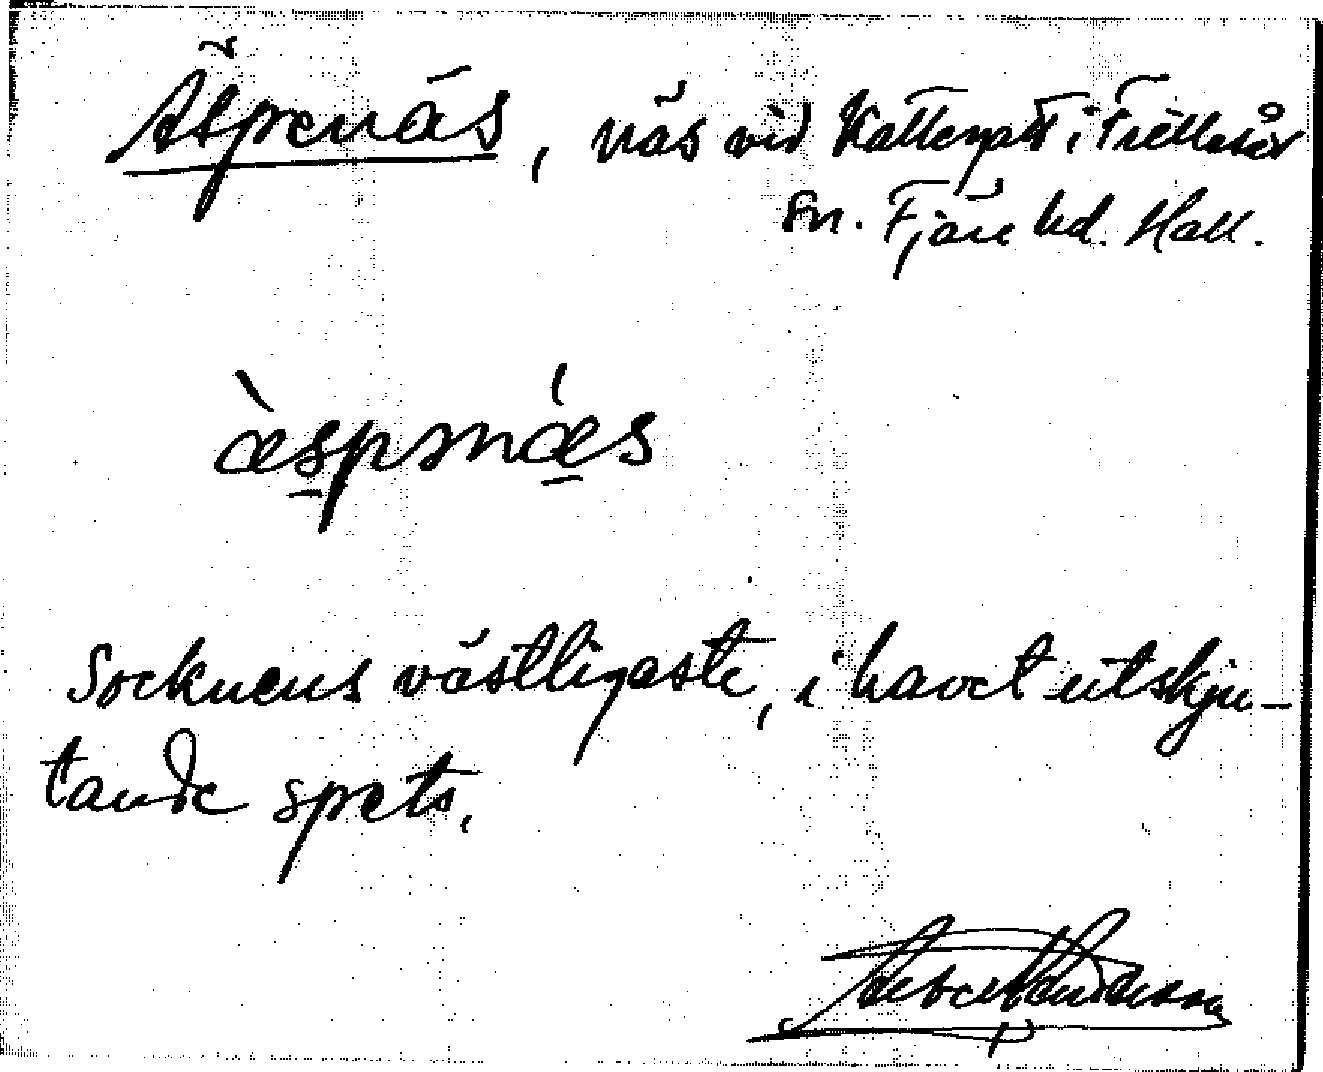 Äspenäs, näs vid Kattegatt i Frillesås
sn. Fjäre hd. Hall.
àespnáes
Socknens västligaste, i havet utskju-
tande spets.